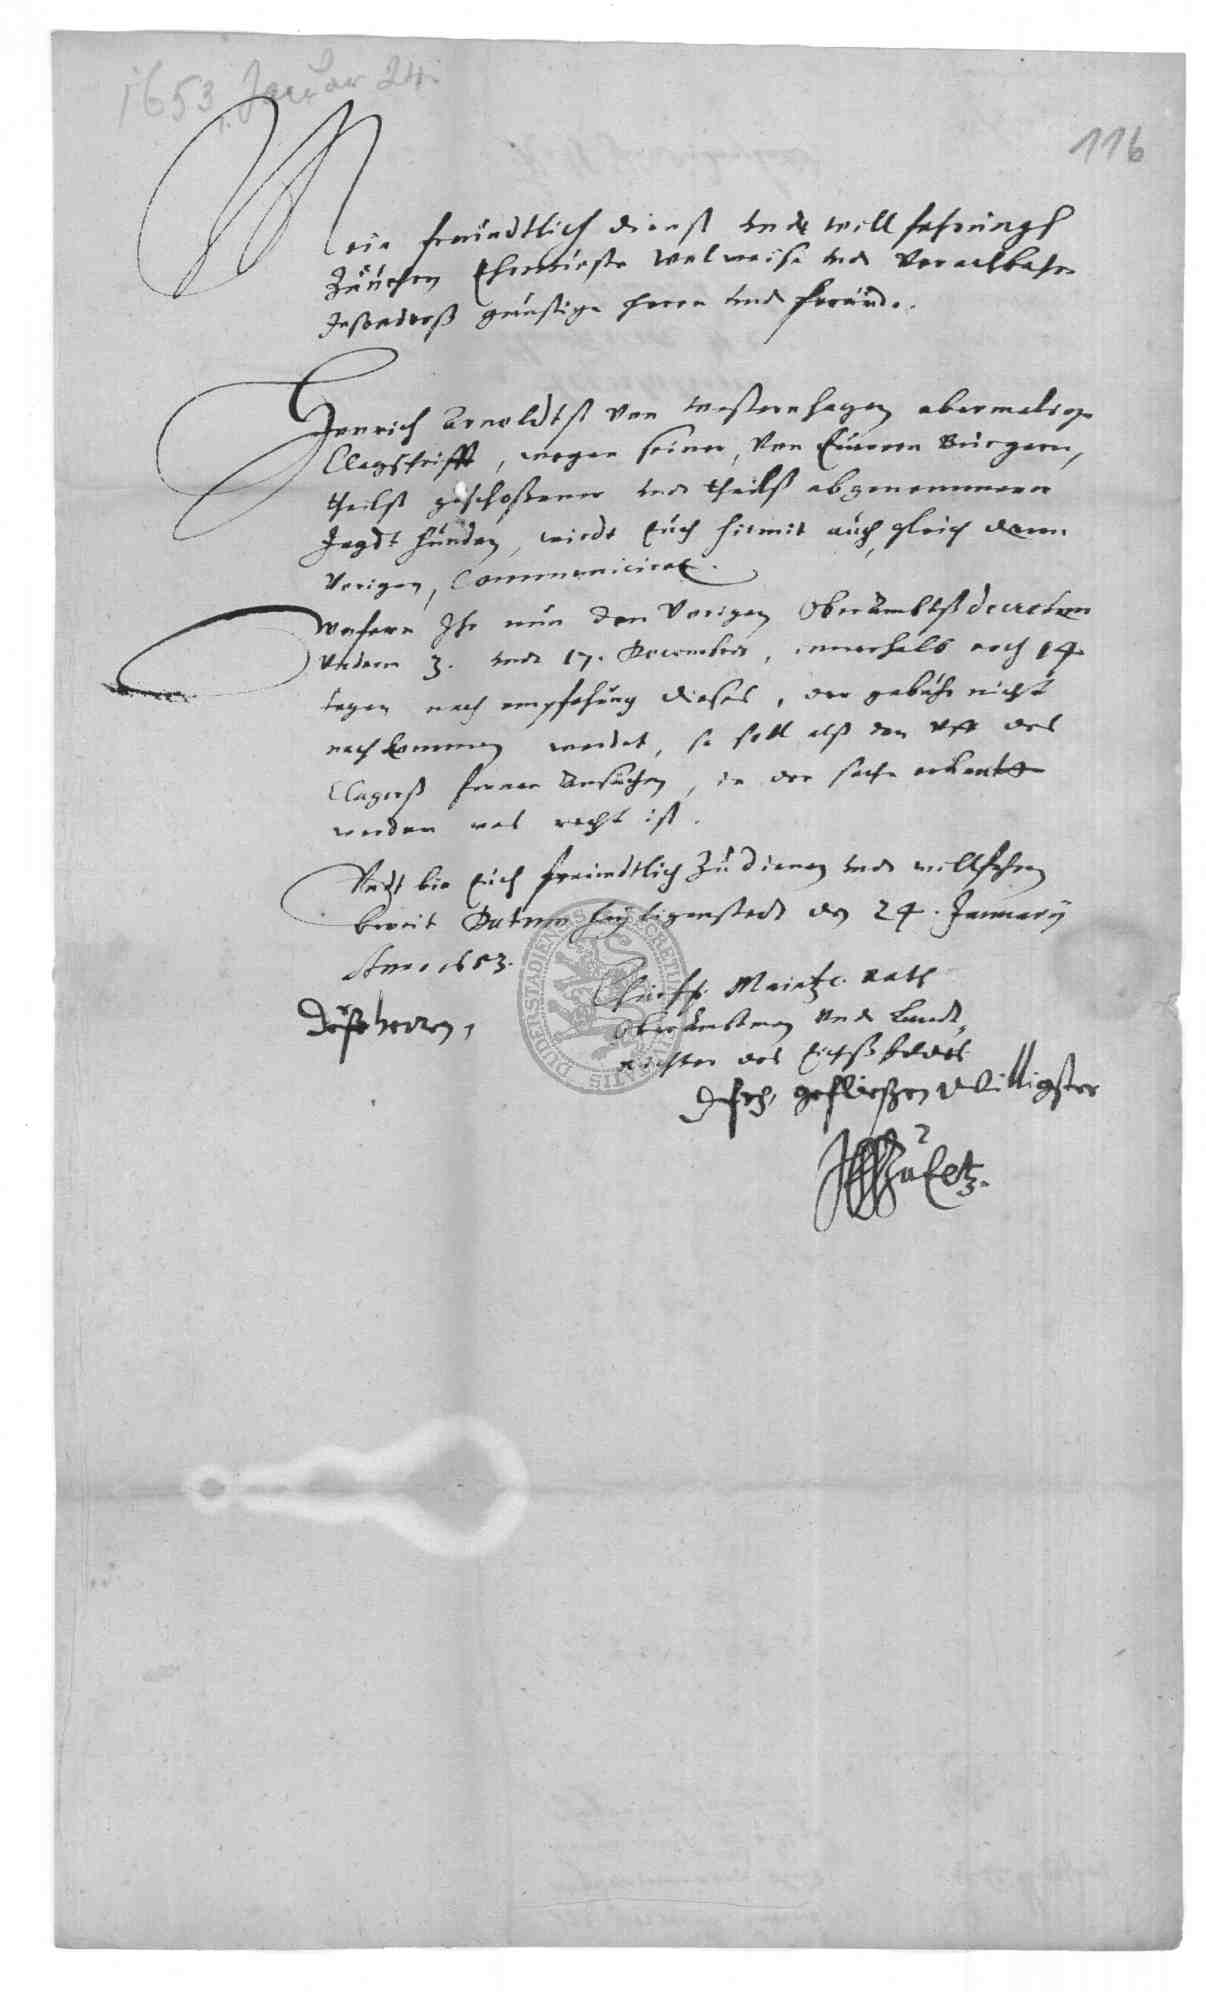 1653, Januar 24.
116
Mein freündtlich dienst undt willfahrungh
Züuohrn Ehrnvieste Wolweise und Vorachtbahre
Insonderß günstige herrn und freünde.
Henrich Arnoldtß von Westernhagen abermalige
Clagschrifft, wegen seiner, von Eüeren Bürgern,
theilß geschoßener und theilß abgenommener
Jagdt hünden, wirdt Eüch hiemit aüch gleich denn
Vorigen, Communiciret.
Wofern Ihr nün den Vorigen Oberambtß decreten
Underm 3. und 17. Decembris, innerhalb noch 14
tagen nach empfahüng dieses, der gebühr nicht
nachkommen werdet, so soll alß dan Uff des
Clagerß ferner Ansüchen, in der sache erkantt
werden was recht ist.
Undt bin Eüch freündtlich Zü dienen und willfahren
bereit Datum Heyligenstadt den 24. January
Anno 1653.
Chürfs. Maintz. Rath
Oberambtman Und Landt,
richter des Eichßfeldes
Der herren,
dienst gefließen Willigster
DUDERSTADIENSIS SECRETUM CIVITATIS